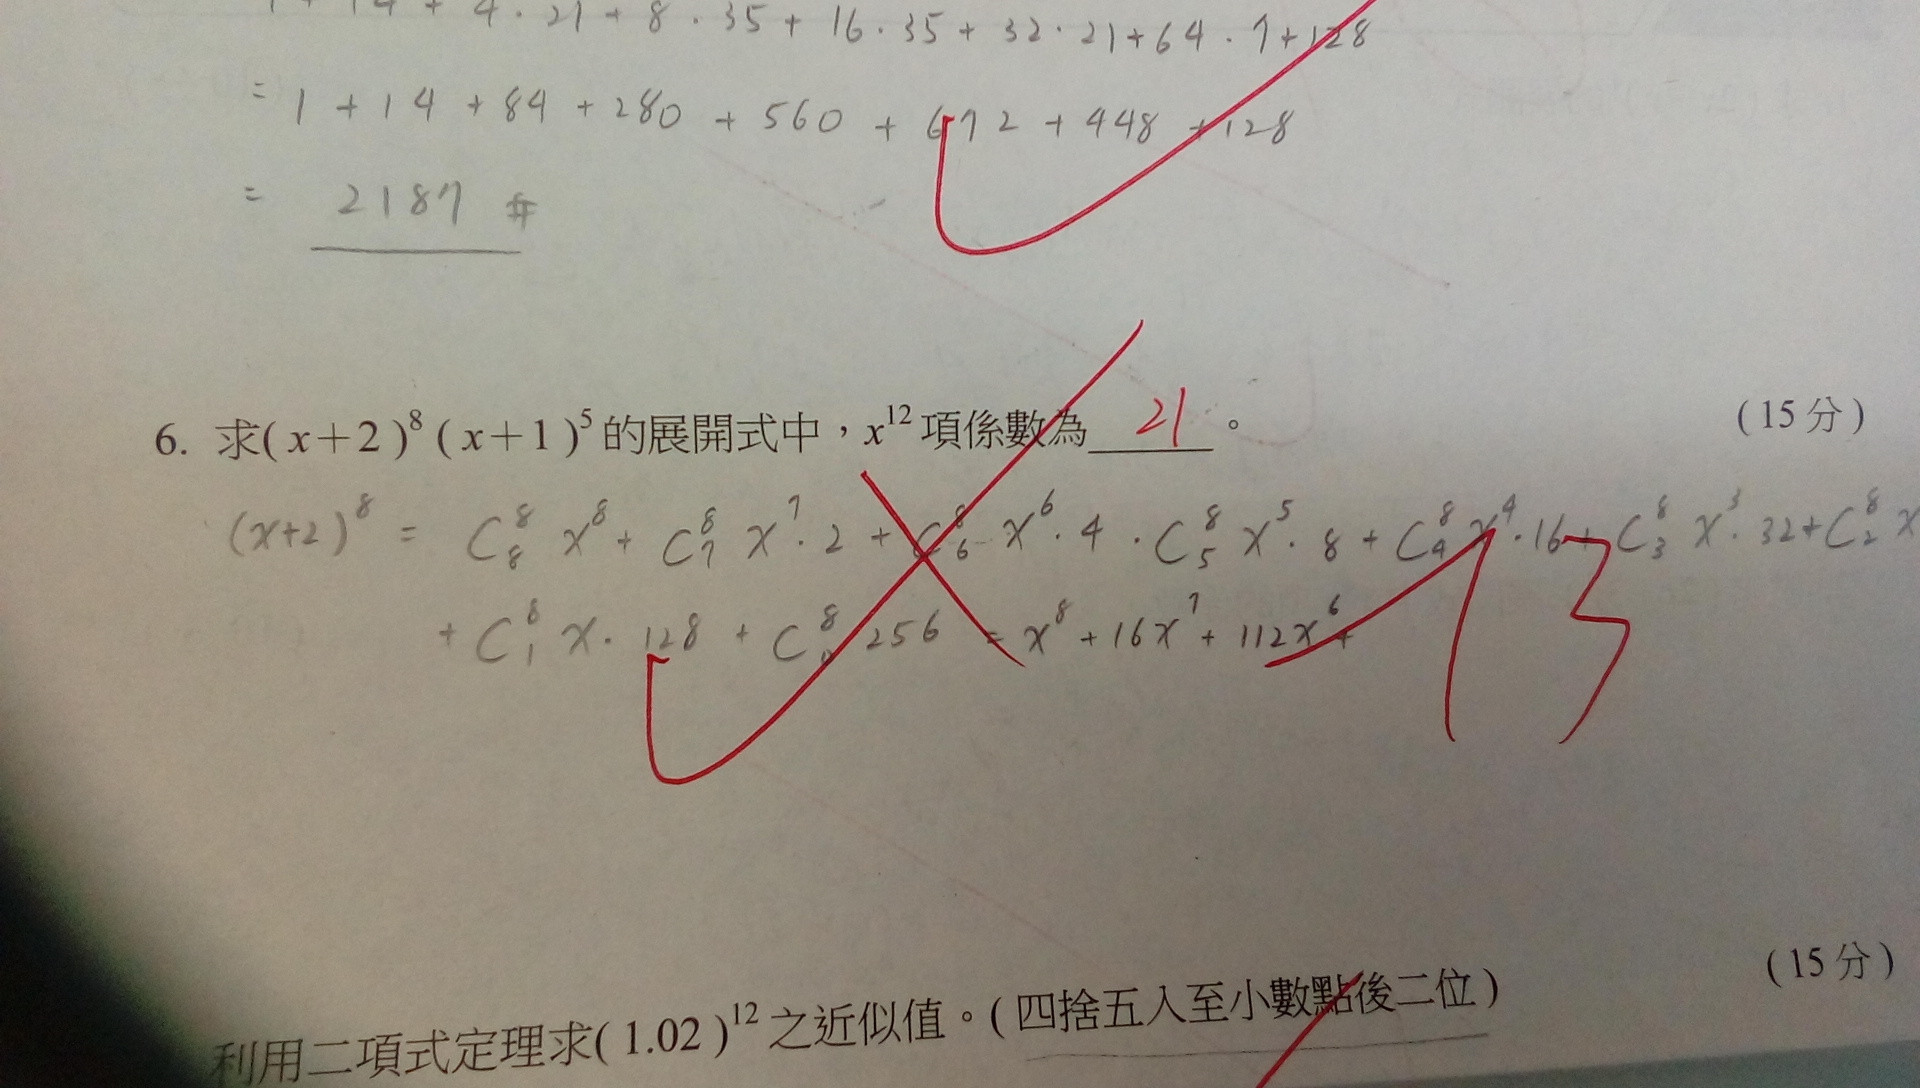 1 + 14 + 4 · 21 + 8 · 35 + 16 · 35 + 32 · 21 + 64 · 7 + 128
= 1 + 14 + 84 + 280 + 560 + 672 + 448 + 128
= 2187 #
6. 求(x+2)⁸(x+1)⁵的展開式中，x¹²項係數為 21 。 (15分)
(x+2)⁸ = C⁸₈ x⁸ + C⁸₇ x⁷ · 2 + C⁸₆ x⁶ · 4 · C⁸₅ x⁵ · 8 + C⁸₄ x⁴ · 16 + C⁸₃ x³ · 32 + C⁸₂ x
+ C⁸₁ x · 128 + C⁸₀ 256 = x⁸ + 16x⁷ + 112x⁶ +
-13
(15分)
利用二項式定理求(1.02)¹²之近似值。(四捨五入至小數點後二位)